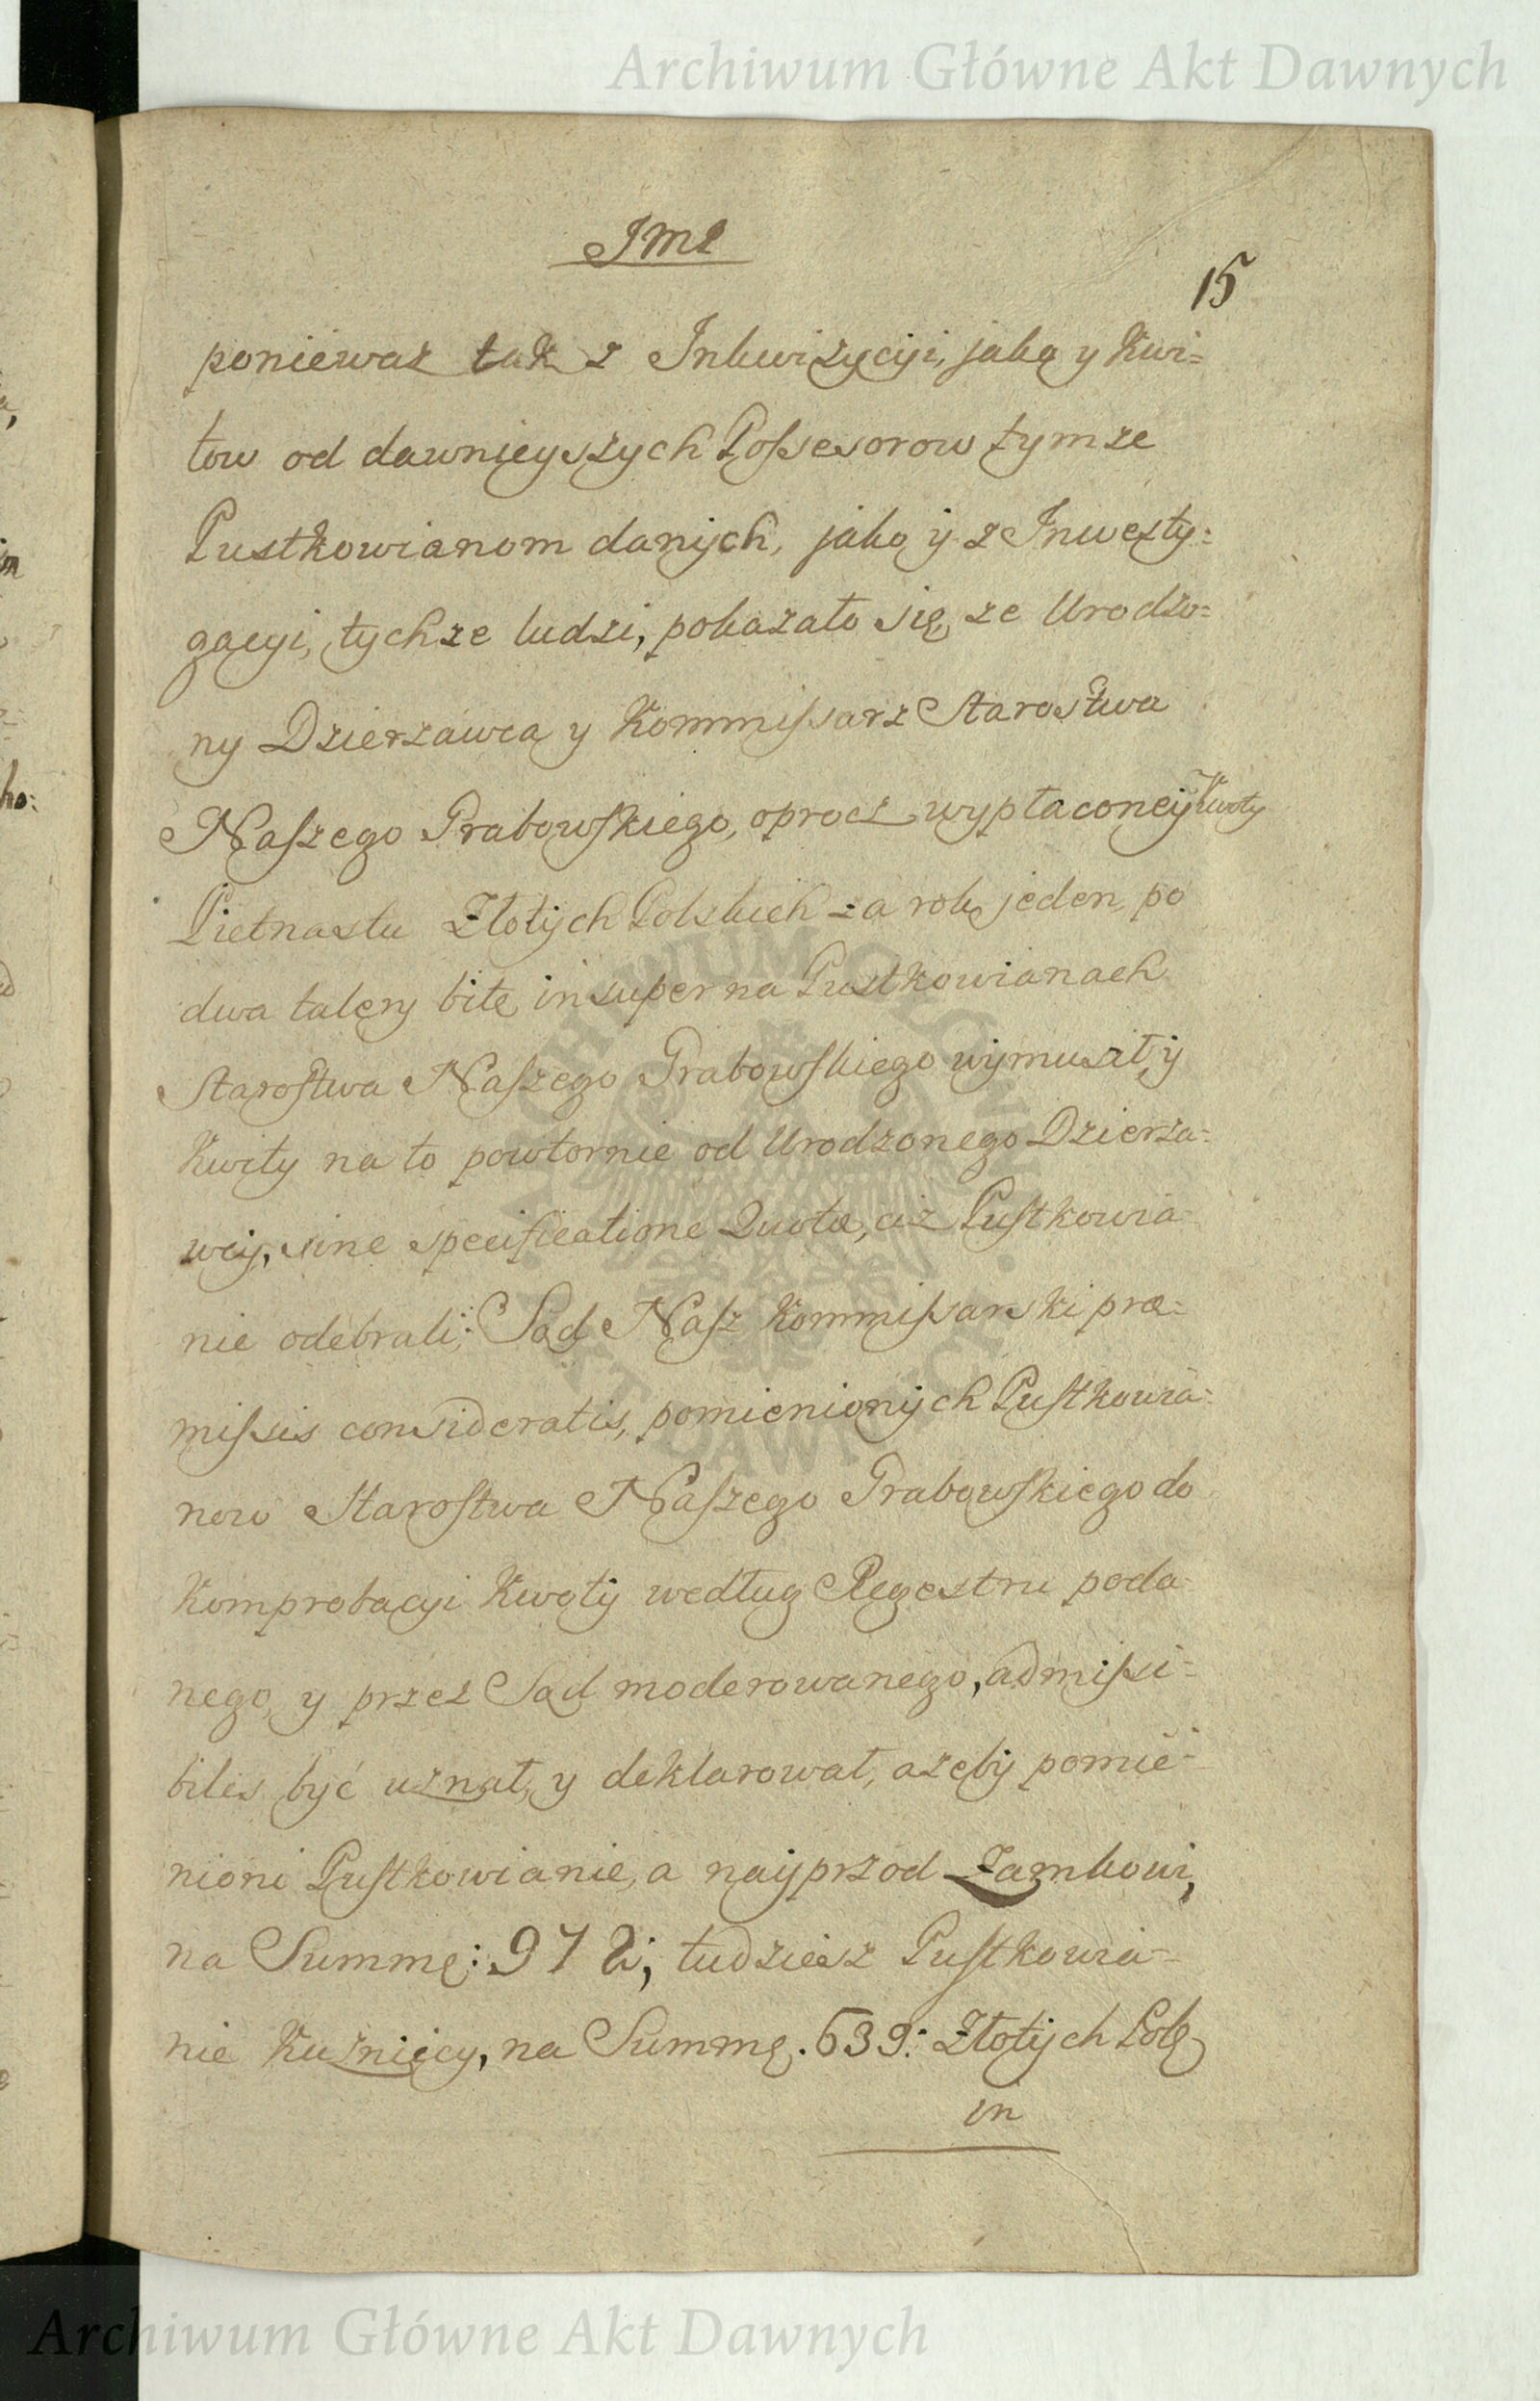 Archiwum Główne Akt Dawnych
Jmo
15
poniewaz tak z Inkwizycyi, jako y Kwi=
tow od dawnieyszych Possesorow tymze
Pustkowianom danych, jako y z Inwesty=
gacyi, tychze ludzi, pokazało się, ze Urodzo=
ny Dzierzawca y Kommissarz Starostwa
Naszego Grabowskiego, oprocz wypłaconey Kwoty
Pietnastu Złotych Polskich za rok jeden, po
dwa talery bite, insuper na Pustkowianach
Starostwa Naszego Grabowskiego wymusił, y
Kwity na to powtornie od Urodzonego Dzierza=
wcy, sine specificatione Quotæ, ciż Pustkowia=
nie odebrali; Sąd Nasz Kommissarski præ=
missis consideratis, pomienionych Pustkowia=
now Starostwa Naszego Grabowskiego do
Komprobacyi Kwoty według Regestru poda=
nego, y przez Sąd moderowanego, admissi=
biles być uznał, y deklarował, azeby pomie=
nioni Pustkowianie, a nayprzod Zamkowi,
na Summę: 972; tudziesz Pustkowia=
nie Kuźniccy, na Summę. 639: Złotych Pols
in
ARCHIWUM GŁÓWNE AKT DAWNYCH
Archiwum Główne Akt Dawnych